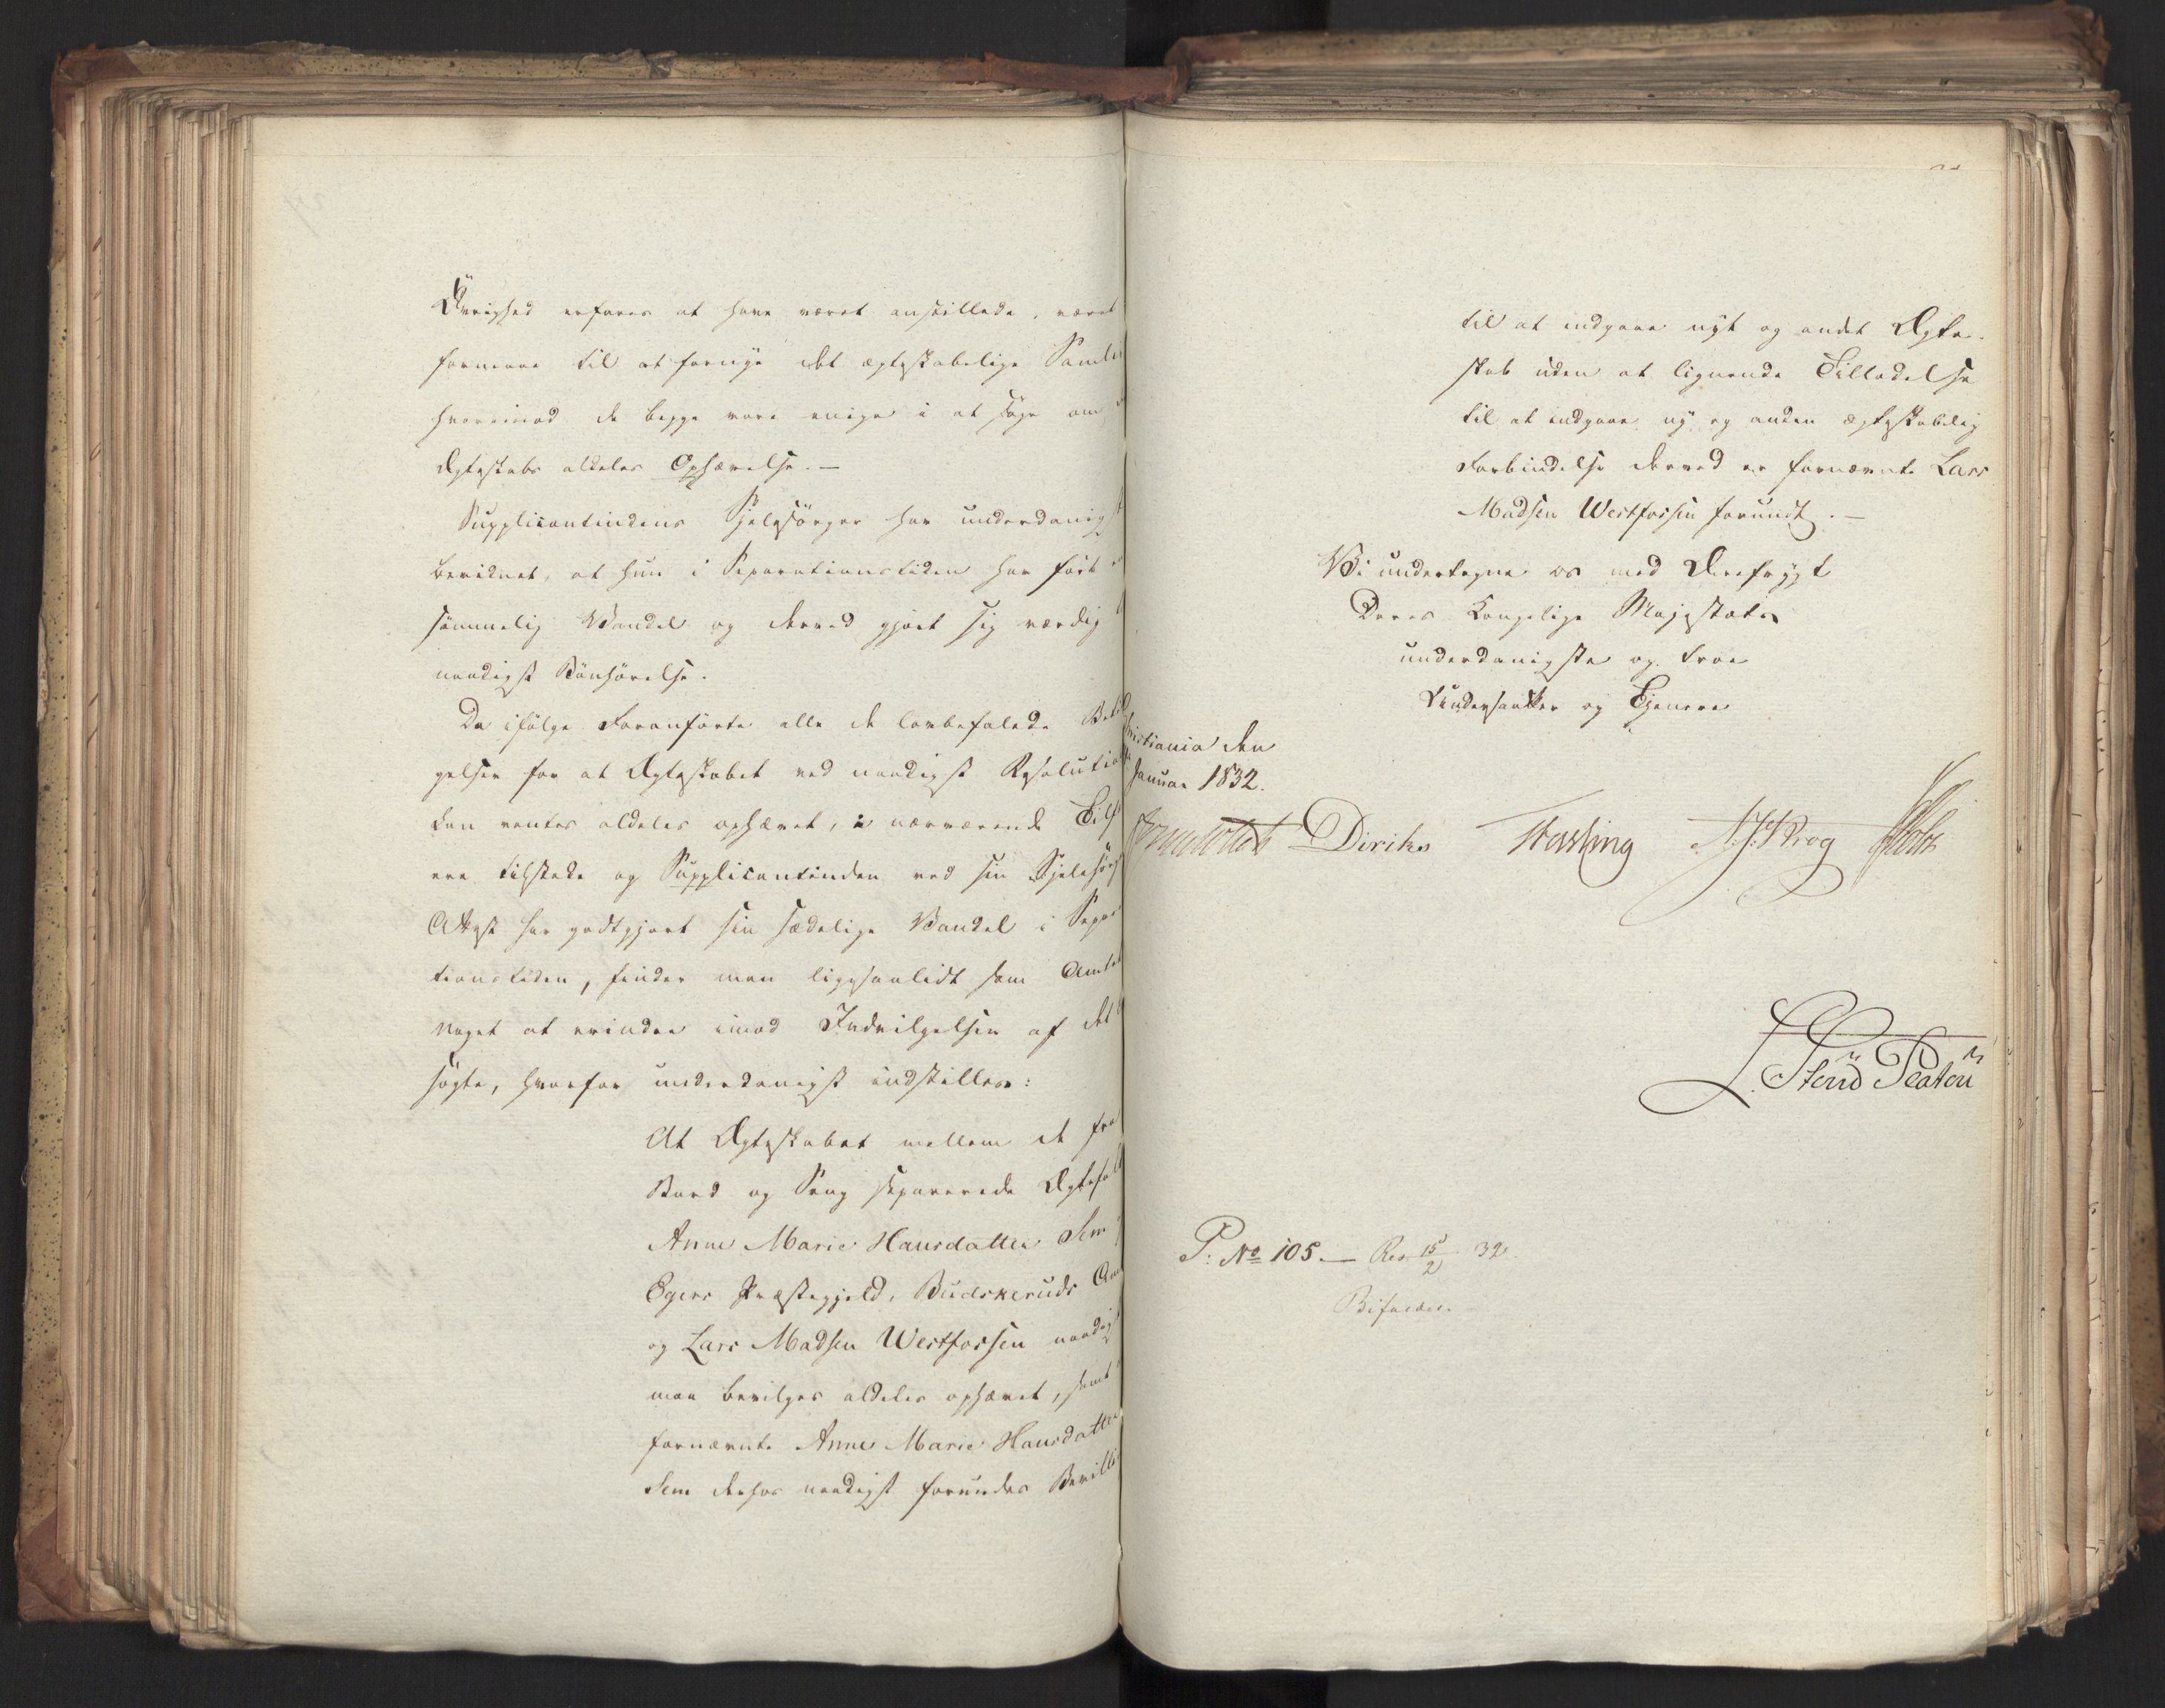 Øvrighed erfares at have været anstillede, været
formaaet til at fornye det ægteskabelige Samliv
hvorimod de begge vare enige i at søge om
Ægteskabs aldeles Ophævelse. —
Supplicantindens Sjelesørger har underdanigst
bevidnet, at hun i Separationstiden har ført
sømmelig Vandel og derved gjort sig værdig
naadigst Bønhørelse.
Da ifølge Foranførte alle de lovbefalede Betin
gelser for at Ægteskabet ved naadigst Resolution
kan ventes aldeles ophævet, i nærværende Tilf
ere tilstede og Supplicantinden ved sin Sjelesørg
Attest har godtgjort sin sædelige Vandel i Sepa
tionstiden, finder man ligesaalidt som Amtet
noget at erindre imod Indvilgelsen af det
søgte, hvorfor underdanigst indstilles:
At Ægteskabet mellem de fra
Bord og Seng separerede Ægtefol
Anne Marie Hansdatter Sem
Egers Præstegjeld, Budskeruds Am
og Lars Madsen Westfossen naadigst
maa bevilges aldeles ophævet, samt
fornævnte Anne Marie Hansdatter
Sem derhos naadigst forundes Bevilli
til at indgaae nyt og andet Ægte-
skab uden at lignende Tilladelse
til at indgaae ny og anden ægteskabelig
Forbindelse derved er fornævnte Lars
Madsen Westfossen forundt. —
Vi undertegne os med Ærefrygt
Deres Kongelige Majestæts
underdanigste og troe
Undersaatter og Tjenere
Christiania den
Januar 1832.
Diriks Hasling N. J. Krog
Platou
P: No 105. — Res. 15/2 32.
Bifaldes.